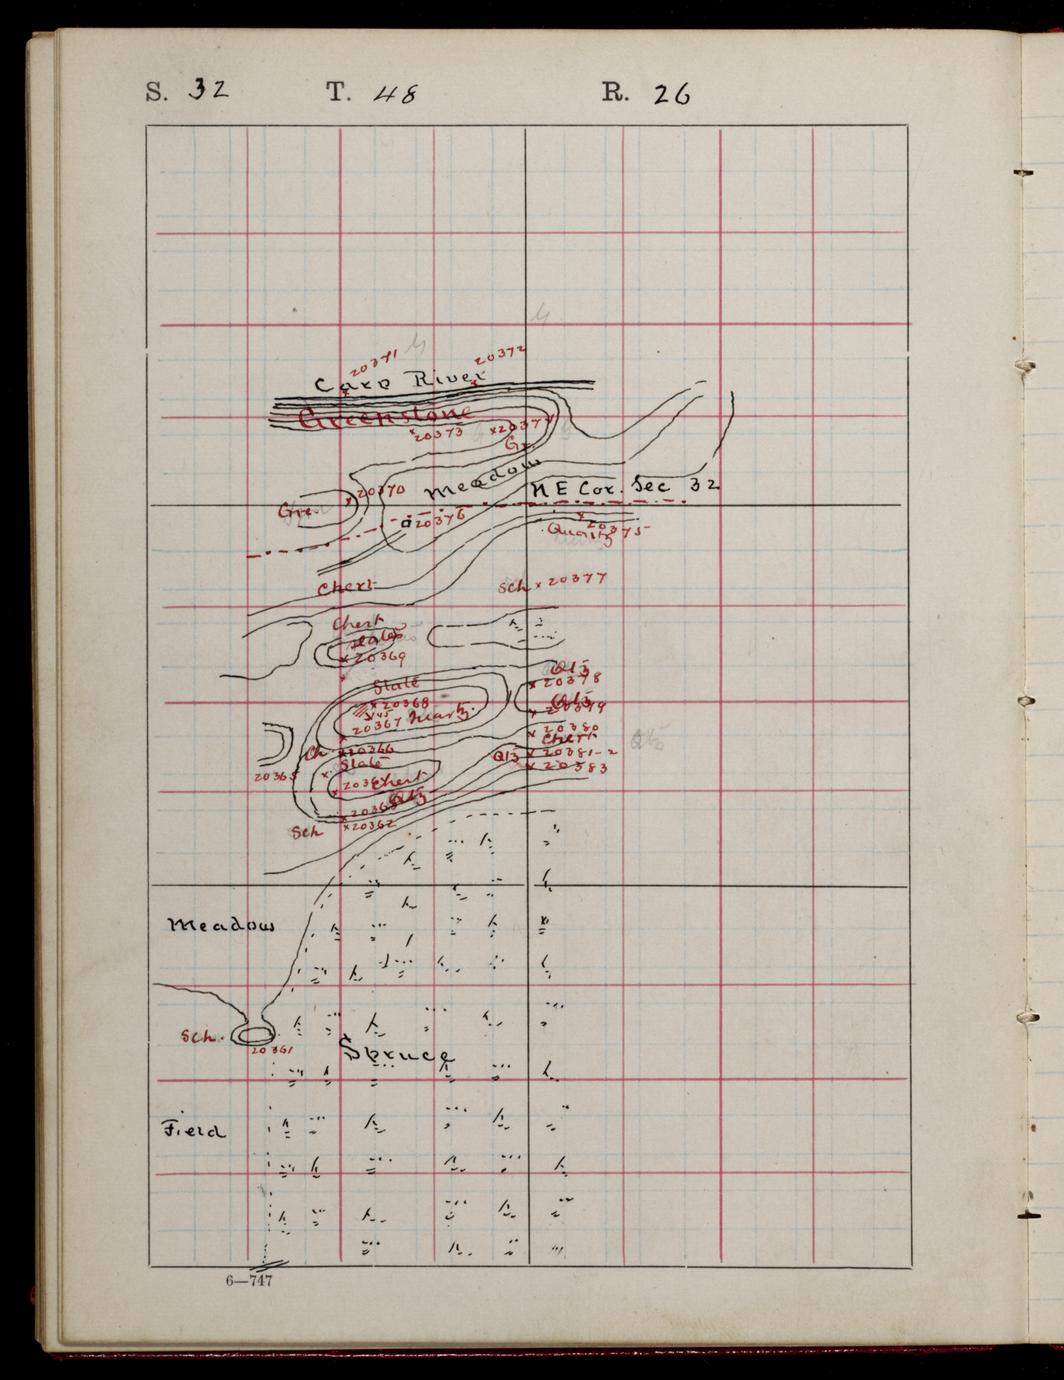 S. 32 T. 48 R. 26
20371
20372
Carp River
Greenstone
x20373
x20374
Gr.
Meadow
N E Cor. Sec 32
x20370
Gre.
20376
x20375
Quartz
Chert
Sch x 20377
Chert
Slates
x20369
Slate
x20368
20367 Quartz
Qtz
x20378
Qtz
x20379
x20380
Chert
x20381-2
x20383
Qtz
Qtz
Ch
x20366
Slate
20365
x20364 Chert
Qtz
x20363
x20362
Sch
Meadow
Sch.
20361
Spruce
Field
6—747